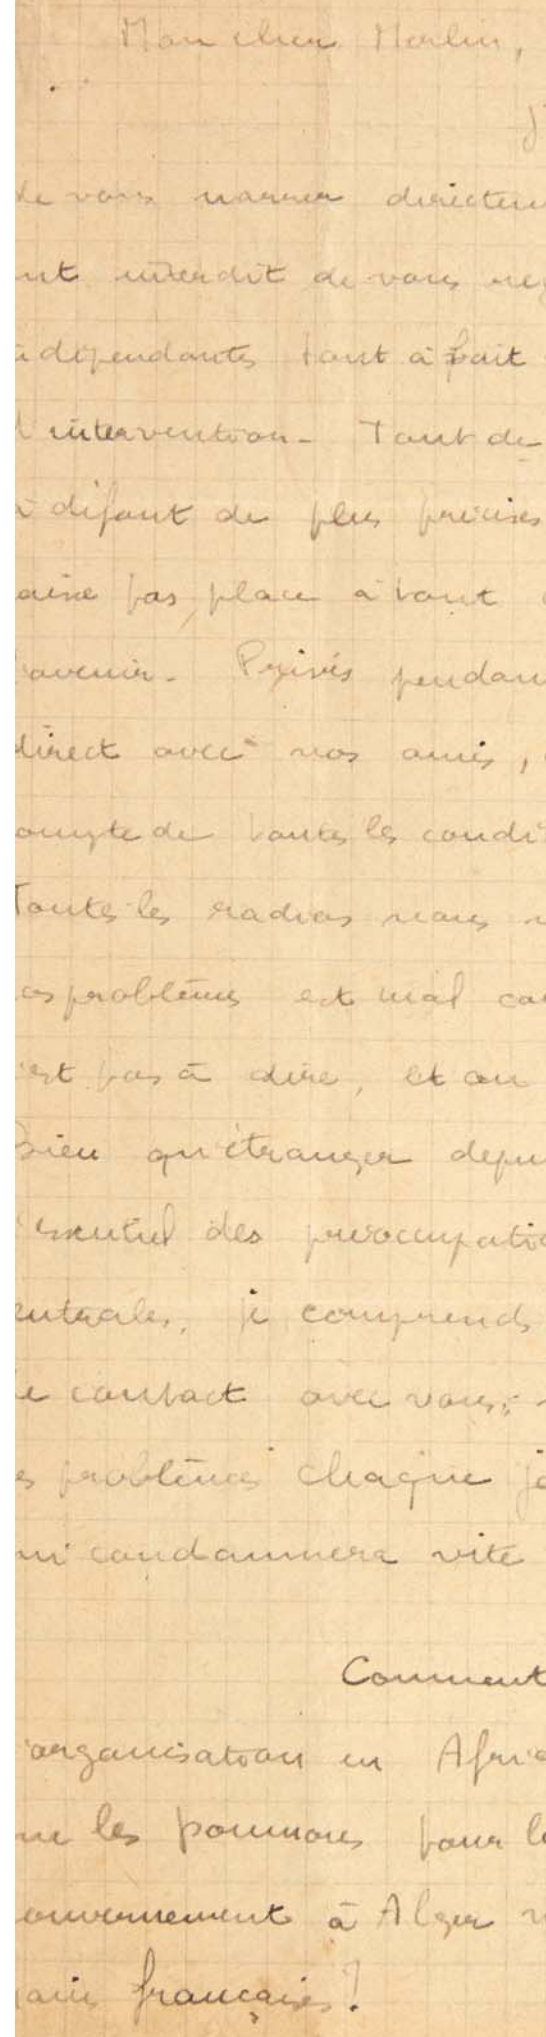 Mon cher Merlin,
J'
de vous narrer directem
nt interdit de vous
indépendantes tout à fait
l'intervention - Tant de
à défaut de plus précises
pas, place à tout
avenir - Privés pendan
direct avec nos amis,
ompte de toutes les condi
Toutes les radios nous
os problèmes est mal
est pas à dire, et on
bien qu'étranger depu
'essentiel des préoccupatio
entrales, je comprends
le contact avec vous,
es problèmes chaque jo
condamnera vite
Comment
organisation en Afri
ue les pouvoirs pour l
ouvernement à Alger
françaises!